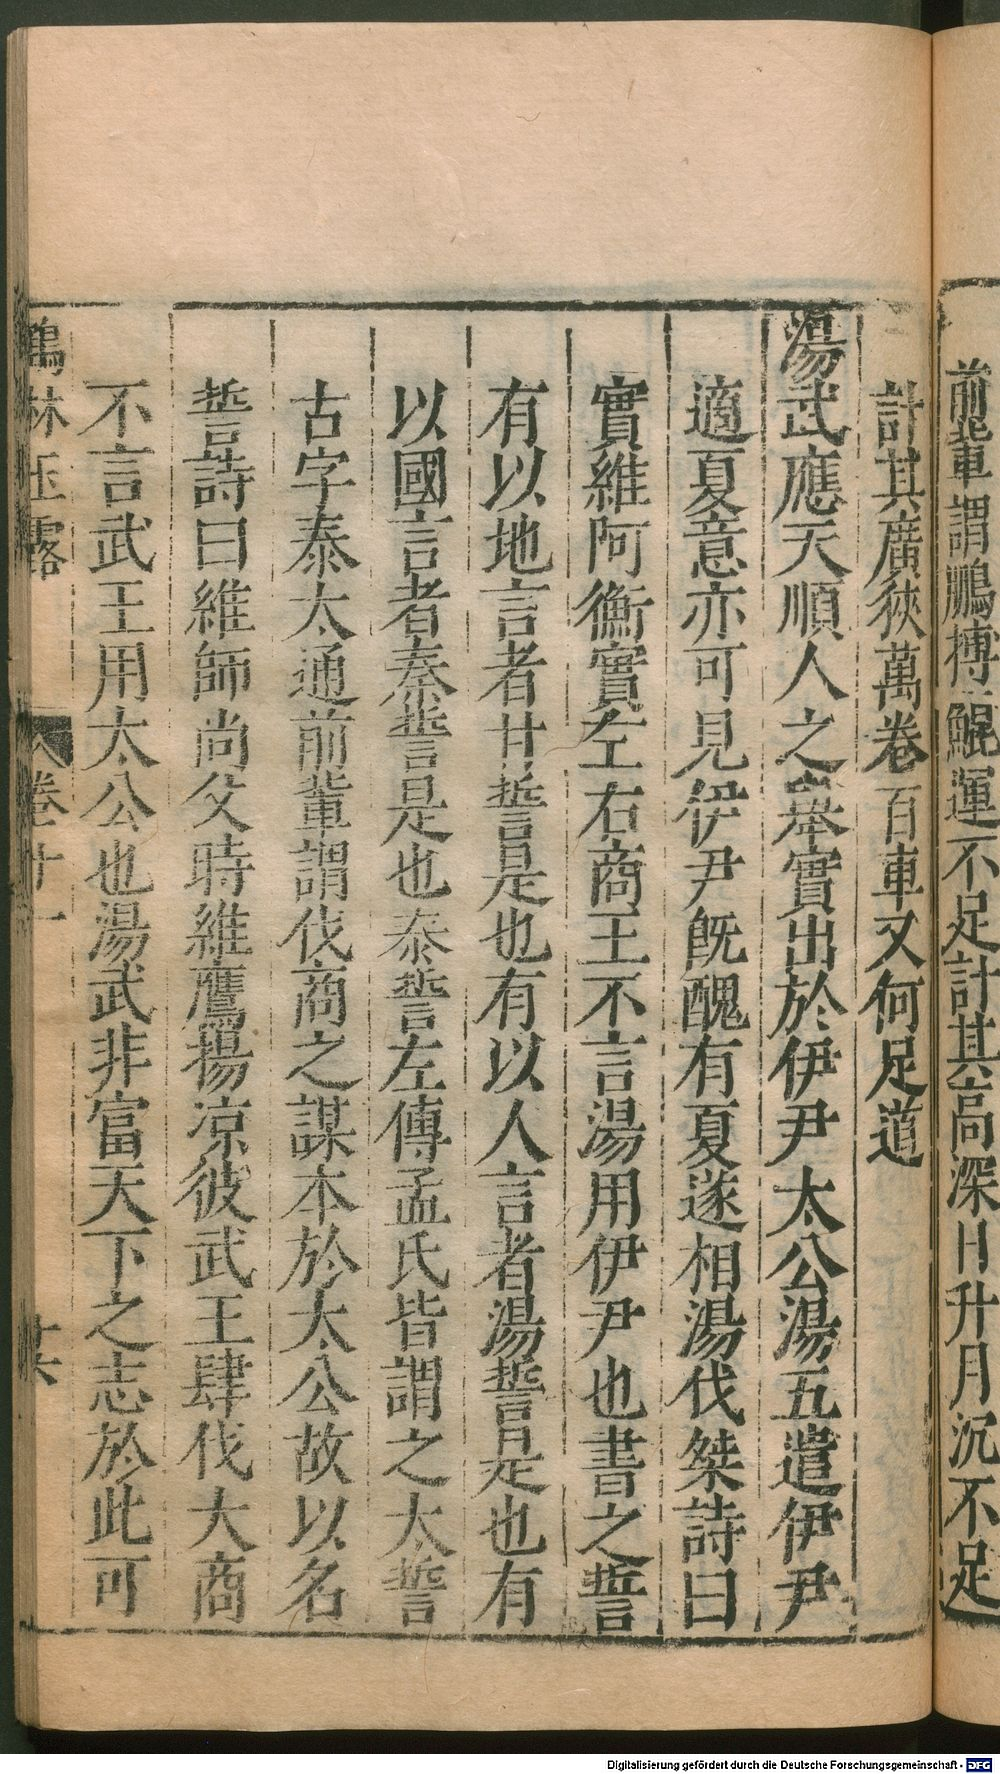 前輩謂鵬搏鯤運不足計其高深日升月沉不足
計其廣狹萬卷百車又何足道
湯武應天順人之舉實出於伊尹太公湯五遣伊尹
適夏意亦可見伊尹旣醜有夏遂相湯伐桀詩曰
實維阿衡實左右商王不言湯用伊尹也書之誓
有以地言者甘誓是也有以人言者湯誓是也有
以國言者秦誓是也泰誓左傳孟氏皆謂之大誓
古字泰太通前輩謂伐商之謀本於太公故以名
誓詩曰維師尚父時維鷹揚凉彼武王肆伐大商
不言武王用太公也湯武非富天下之志於此可
鶴林玉露 卷十一 廿六
Digitalisierung gefördert durch die Deutsche Forschungsgemeinschaft - DFG